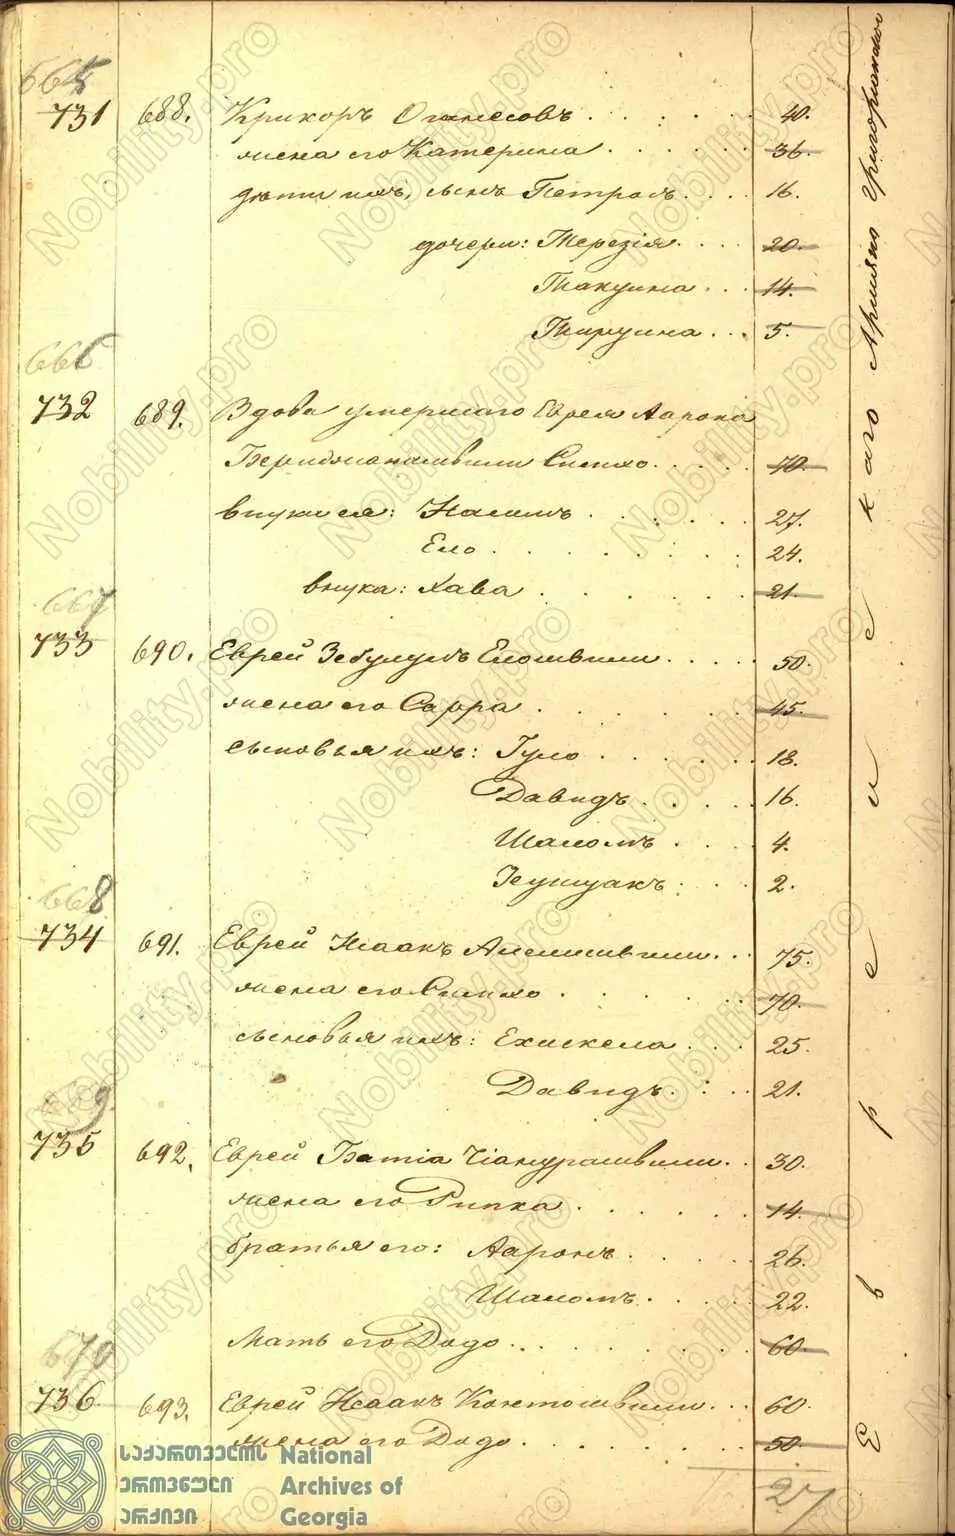 665
731 688. Крикоръ Оганесовъ 40.
жена его Катерина 36.
дѣти ихъ, сынъ Петросъ 16.
дочери: Терезія 20.
Такуина 14.
Тируина 5.
666
732 689. Вдова умершаго Еврея Аарона
Сипхо 70.
внуки ея: Насимъ 27.
Ело 24.
внука: Хава 21.
667
733 690. Еврей Зебулумъ Елошвили 50.
жена его Сарра 45.
сыновья ихъ: Гуло 18.
Давидъ 16.
Шаломъ 4.
2.
668
734 691. Еврей Исаакъ 75.
жена его Сипхо 70.
сыновья ихъ: Ехискела 25.
Давидъ 21.
669
735 692. Еврей Батіа 30.
жена его Рипка 14.
братья его: Ааронъ 26.
Шаломъ 22.
Мать его Додо 60.
670
736 693. Еврей Исаакъ 60.
жена его Додо 50.
27
Евреи
Армяно Григоріанскаго
საქართველოს National
ეროვნული Archives of
არქივი Georgia
Nobility.pro